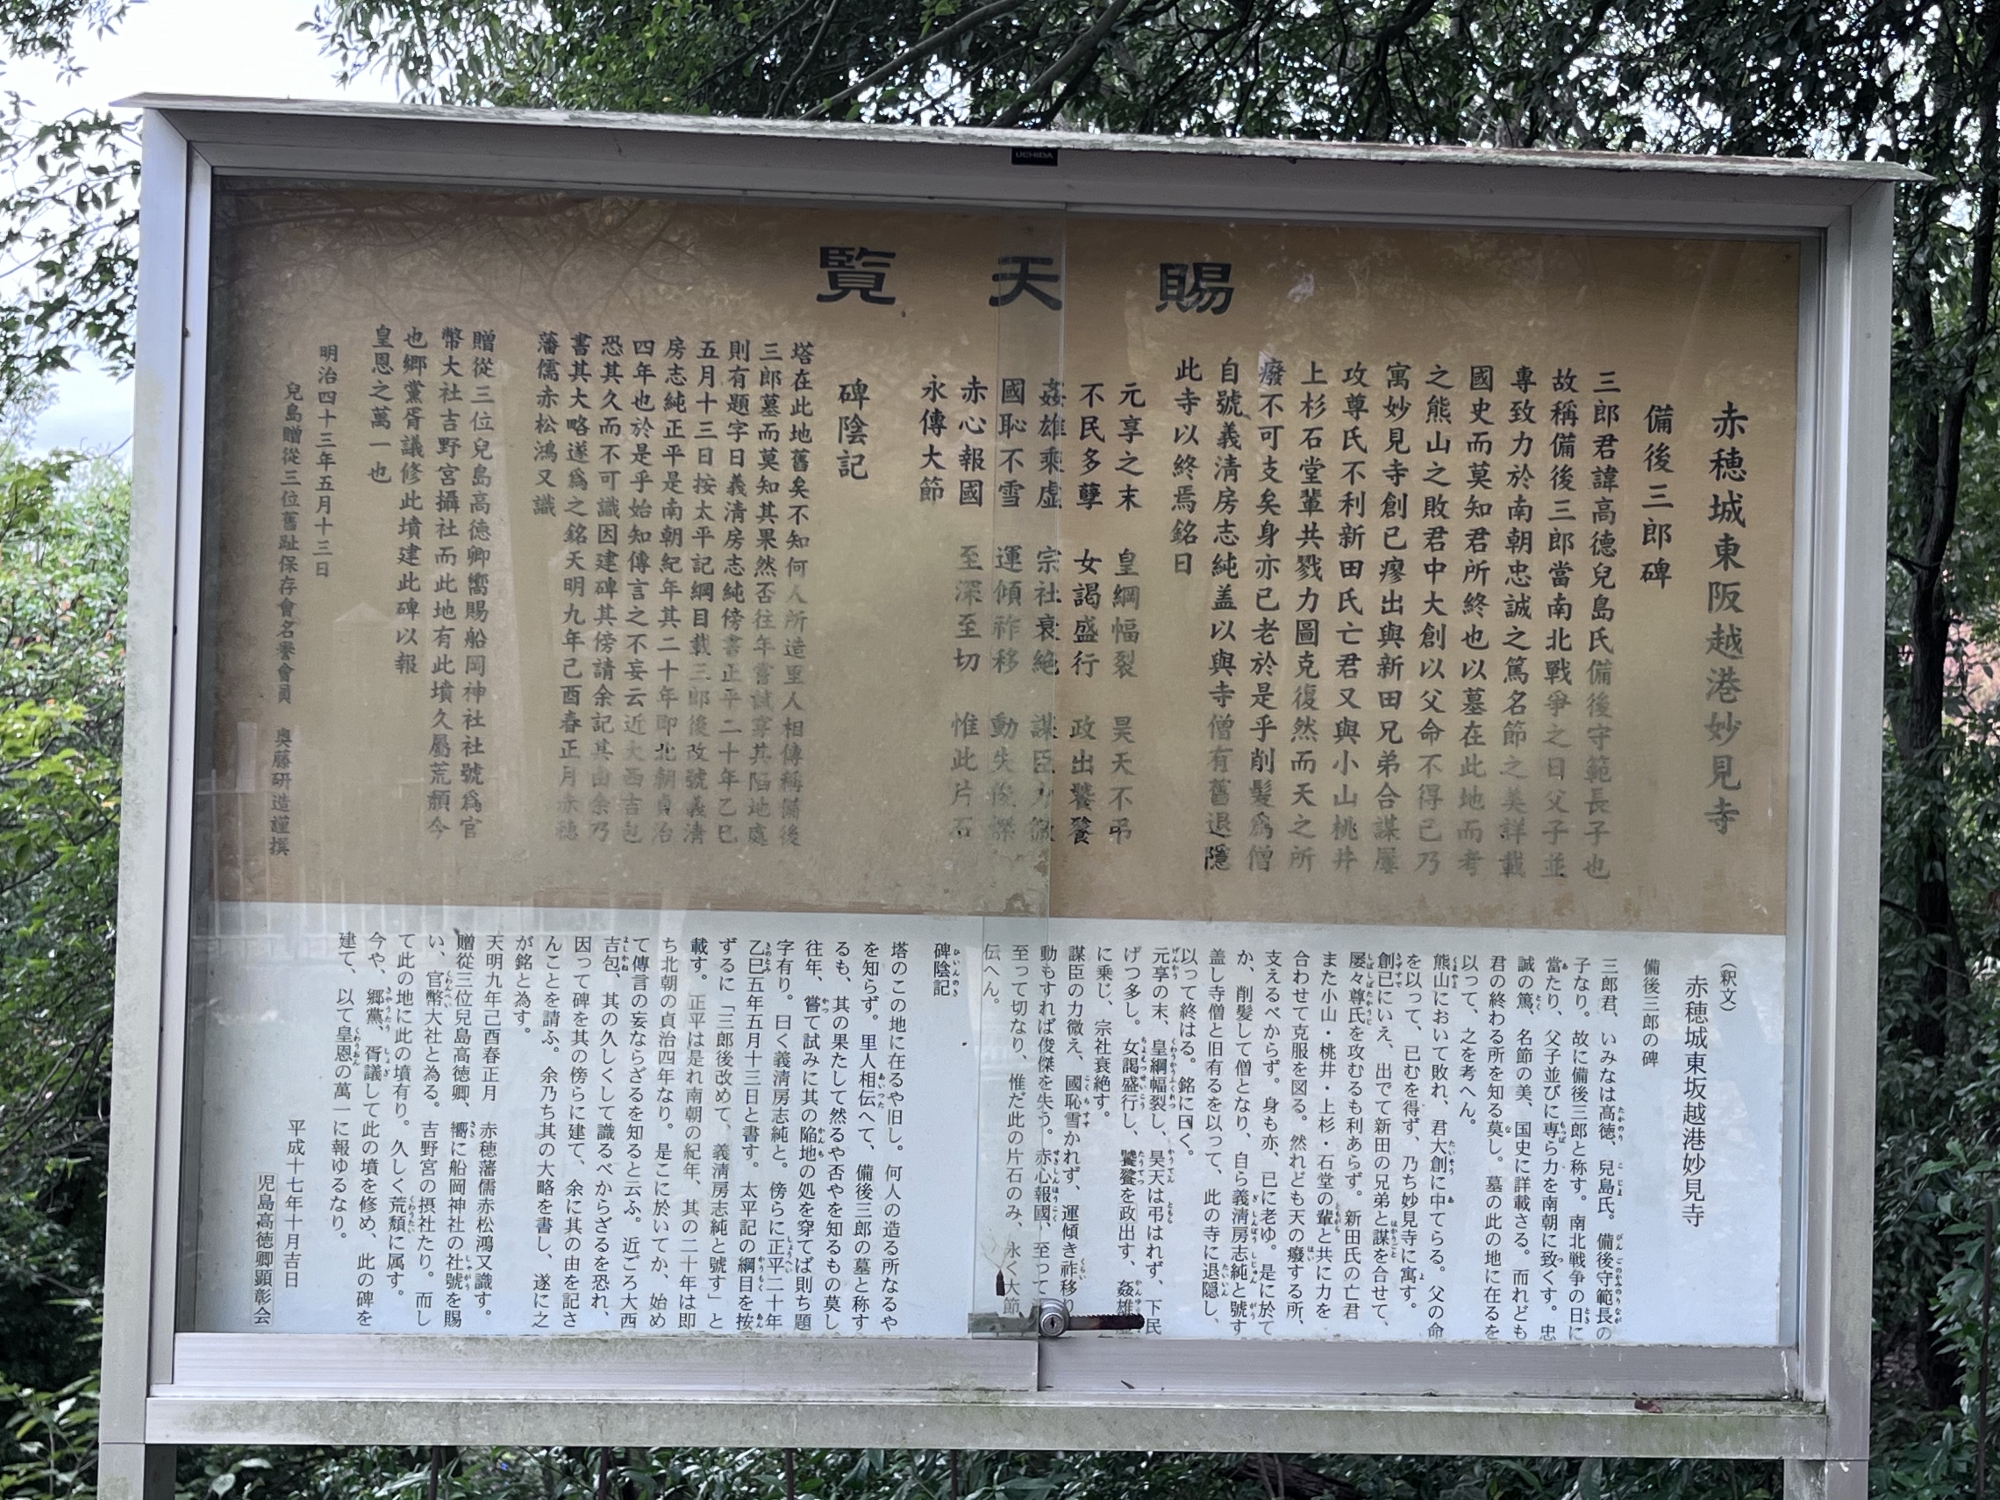 UCHIDA
賜天覧
赤穂城東阪越港妙見寺
備後三郎碑
三郎君諱高德兒島氏備後守範長子也
故稱備後三郎當南北戰爭之日父子並
專致力於南朝忠誠之篤名節之美詳載
國史而莫知君所終也以墓在此地而考
之熊山之敗君中大創以父命不得已乃
寓妙見寺創已瘳出與新田兄弟合謀屢
攻尊氏不利新田氏亡君又與小山桃井
上杉石堂輩共戮力圖克復然而天之所
癈不可支矣身亦已老於是乎削髮爲僧
自號義清房志純盖以與寺僧有舊退隱
此寺以終焉銘曰
元享之末 皇綱幅裂 昊天不弔
不民多孽 女謁盛行 政出饕餮
姦雄乘虛 宗社衰絶 謀臣力微
國恥不雪 運傾祚移 動失俊傑
赤心報國 至深至切 惟此片石
永傳大節
碑陰記
塔在此地舊矣不知何人所造里人相傳稱備後
三郎墓而莫知其果然否往年嘗試穿其陷地處
則有題字曰義淸房志純傍書正平二十年乙巳
五月十三日按太平記綱目載三郎後改號義淸
房志純正平是南朝紀年其二十年即北朝貞治
四年也於是乎始知傳言之不妄云近大西吉包
恐其久而不可識因建碑其傍請余記其由余乃
書其大略遂爲之銘天明九年己酉春正月赤穂
藩儒赤松鴻又識
贈從三位兒島高德卿嚮賜船岡神社社號爲官
幣大社吉野宮攝社而此地有此墳久屬荒頽今
也郷黨胥議修此墳建此碑以報
皇恩之萬一也
明治四十三年五月十三日
兒島贈從三位舊趾保存會名譽會員 奥藤研造謹撰
（釈文）
赤穂城東坂越港妙見寺
備後三郎の碑
三郎君、いみなは高徳、兒島氏。備後守範長の
子なり。故に備後三郎と称す。南北戦争の日に
当たり、父子並びに専ら力を南朝に致くす。忠
誠の篤、名節の美、国史に詳載さる。而れども
君の終わる所を知る莫し。墓の此の地に在るを
以って、之を考へん。
熊山において敗れ、君大創に中てらる。父の命
を以って、已むを得ず、乃ち妙見寺に寓す。
創已にいえ、出でて新田の兄弟と謀を合せて、
屡々尊氏を攻むるも利あらず。新田氏の亡君
また小山・桃井・上杉・石堂の輩と共に力を
合わせて克服を図る。然れども天の癈する所、
支えるべからず。身も亦、已に老ゆ。是に於て
か、削髪して僧となり、自ら義淸房志純と號す
盖し寺僧と旧有るを以って、此の寺に退隠し、
以って終はる。銘に曰く。
元享の末、皇綱幅裂し、昊天は弔はれず、下民
げつ多し。女謁盛行し、饕餮を政出す、姦雄虚
に乗じ、宗社衰絶す。
謀臣の力微え、國恥雪かれず、運傾き祚移り
動もすれば俊傑を失う。赤心報國、至って
至って切なり、惟だ此の片石のみ、永く大節
伝へん。
碑陰記
塔のこの地に在るや旧し。何人の造る所なるや
を知らず。里人相伝へて、備後三郎の墓と称す
るも、其の果たして然るや否やを知るもの莫し
往年、嘗て試みに其の陥地の処を穿てば則ち題
字有り。曰く義淸房志純と。傍らに正平二十年
乙巳五年五月十三日と書す。太平記の綱目を按
ずるに「三郎後改めて、義淸房志純と號す」と
載す。正平は是れ南朝の紀年、其の二十年は即
ち北朝の貞治四年なり。是こに於いてか、始め
て傳言の妄ならざるを知ると云ふ。近ごろ大西
吉包、其の久しくして識るべからざるを恐れ、
因って碑を其の傍らに建て、余に其の由を記さ
んことを請ふ。余乃ち其の大略を書し、遂に之
が銘と為す。
天明九年己酉春正月 赤穂藩儒赤松鴻又識す。
贈從三位兒島高徳卿、嚮に船岡神社の社號を賜
い、官幣大社と為る。吉野宮の摂社たり。而し
て此の地に此の墳有り。久しく荒頽に属す。
今や、郷黨、胥議して此の墳を修め、此の碑を
建て、以て皇恩の萬一に報ゆるなり。
平成十七年十月吉日
児島高徳卿顕彰会